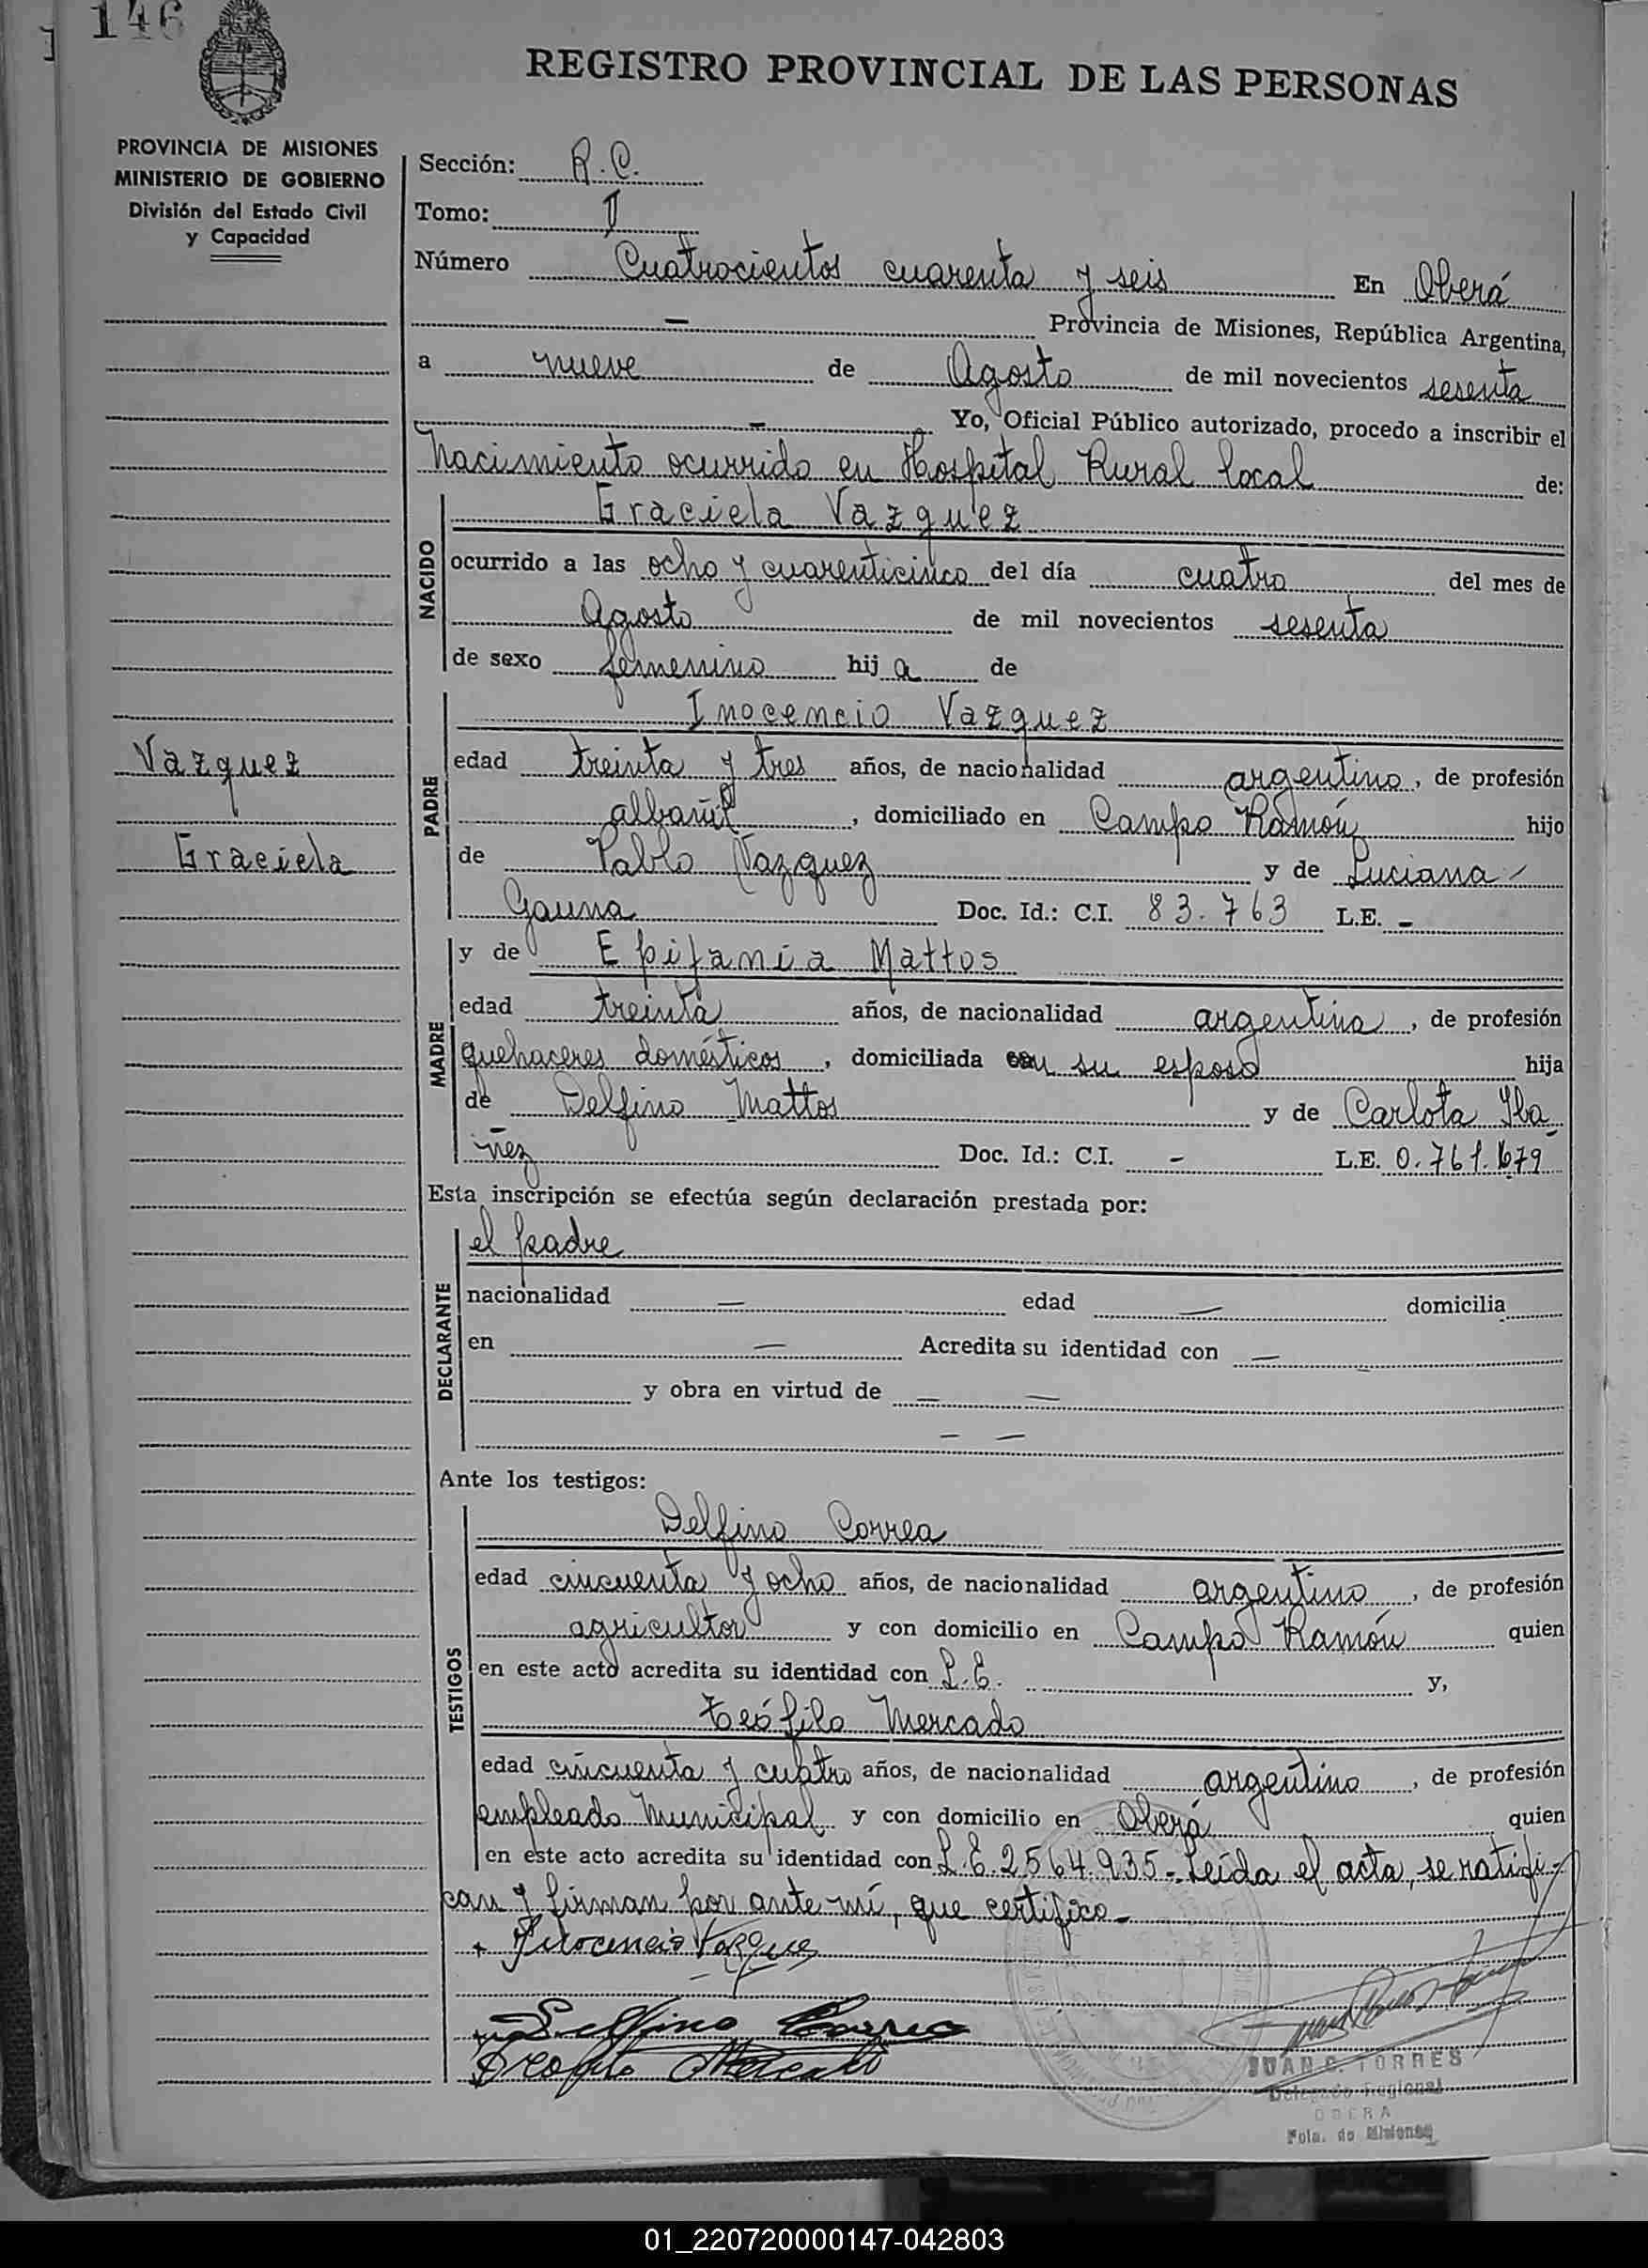 146
REGISTRO PROVINCIAL DE LAS PERSONAS
PROVINCIA DE MISIONES
MINISTERIO DE GOBIERNO
División del Estado Civil
y Capacidad
Sección: R.C.
Tomo: I
Número Cuatrocientos cuarenta y seis En Oberá
— Provincia de Misiones, República Argentina,
a nueve de Agosto de mil novecientos sesenta
— Yo, Oficial Público autorizado, procedo a inscribir el
Nacimiento ocurrido en Hospital Rural local de:
NACIDO
Graciela Vazquez
ocurrido a las ocho y cuarenticinco del día cuatro del mes de
Agosto de mil novecientos sesenta
de sexo femenino hij a de
Vazquez
Graciela
PADRE
Inocencio Vazquez
edad treinta y tres años, de nacionalidad argentino, de profesión
albañil, domiciliado en Campo Ramón hijo
de Pablo Vazquez y de Luciana
Gauna Doc. Id.: C.I. 83.763 L.E. -
MADRE
y de Epifania Mattos
edad treinta años, de nacionalidad argentina, de profesión
quehaceres domésticos, domiciliada su esposo hija
de Delfino Mattos y de Carlota Iba
ñez Doc. Id.: C.I. - L.E. 0.761.679
Esta inscripción se efectúa según declaración prestada por:
DECLARANTE
el padre
nacionalidad — edad — domicilia
en — Acredita su identidad con —
y obra en virtud de — —
— —
Ante los testigos:
TESTIGOS
Delfino Correa
edad cincuenta y ocho años, de nacionalidad argentino, de profesión
agricultor y con domicilio en Campo Ramón quien
en este acto acredita su identidad con L.E. y,
Teófilo Mercado
edad cincuenta y cuatro años, de nacionalidad argentino, de profesión
empleado Municipal y con domicilio en Oberá quien
en este acto acredita su identidad con L.E. 2564.935- Leída el acta, se ratifi-
can y firman por ante mí, que certifico-
Inocencio Vazquez
Delfino Correa
Teofilo Mercado
JUAN C. TORRES
Delegado Regional
OBERA
Pcia. de Misiones
01_220720000147-042803